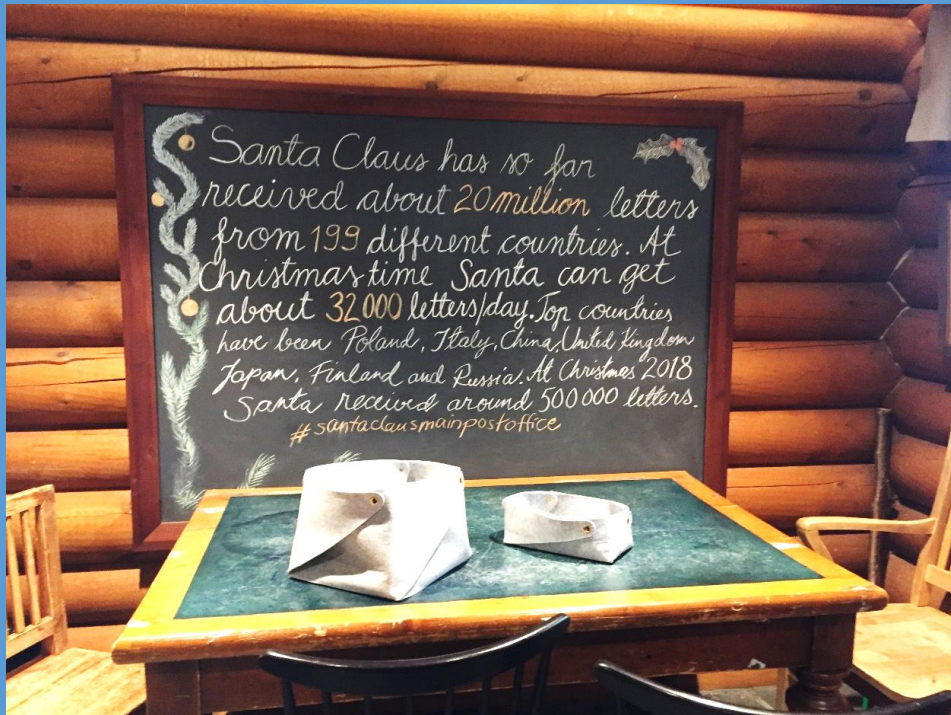 Santa Claus has so far
received about 20 million letters
from 199 different countries. At
Christmas time Santa can get
about 32 000 letters/day. Top countries
have been Poland, Italy, China, United Kingdom
Japan, Finland and Russia. At Christmas 2018
Santa received around 500 000 letters.
# santaclausmainpostoffice